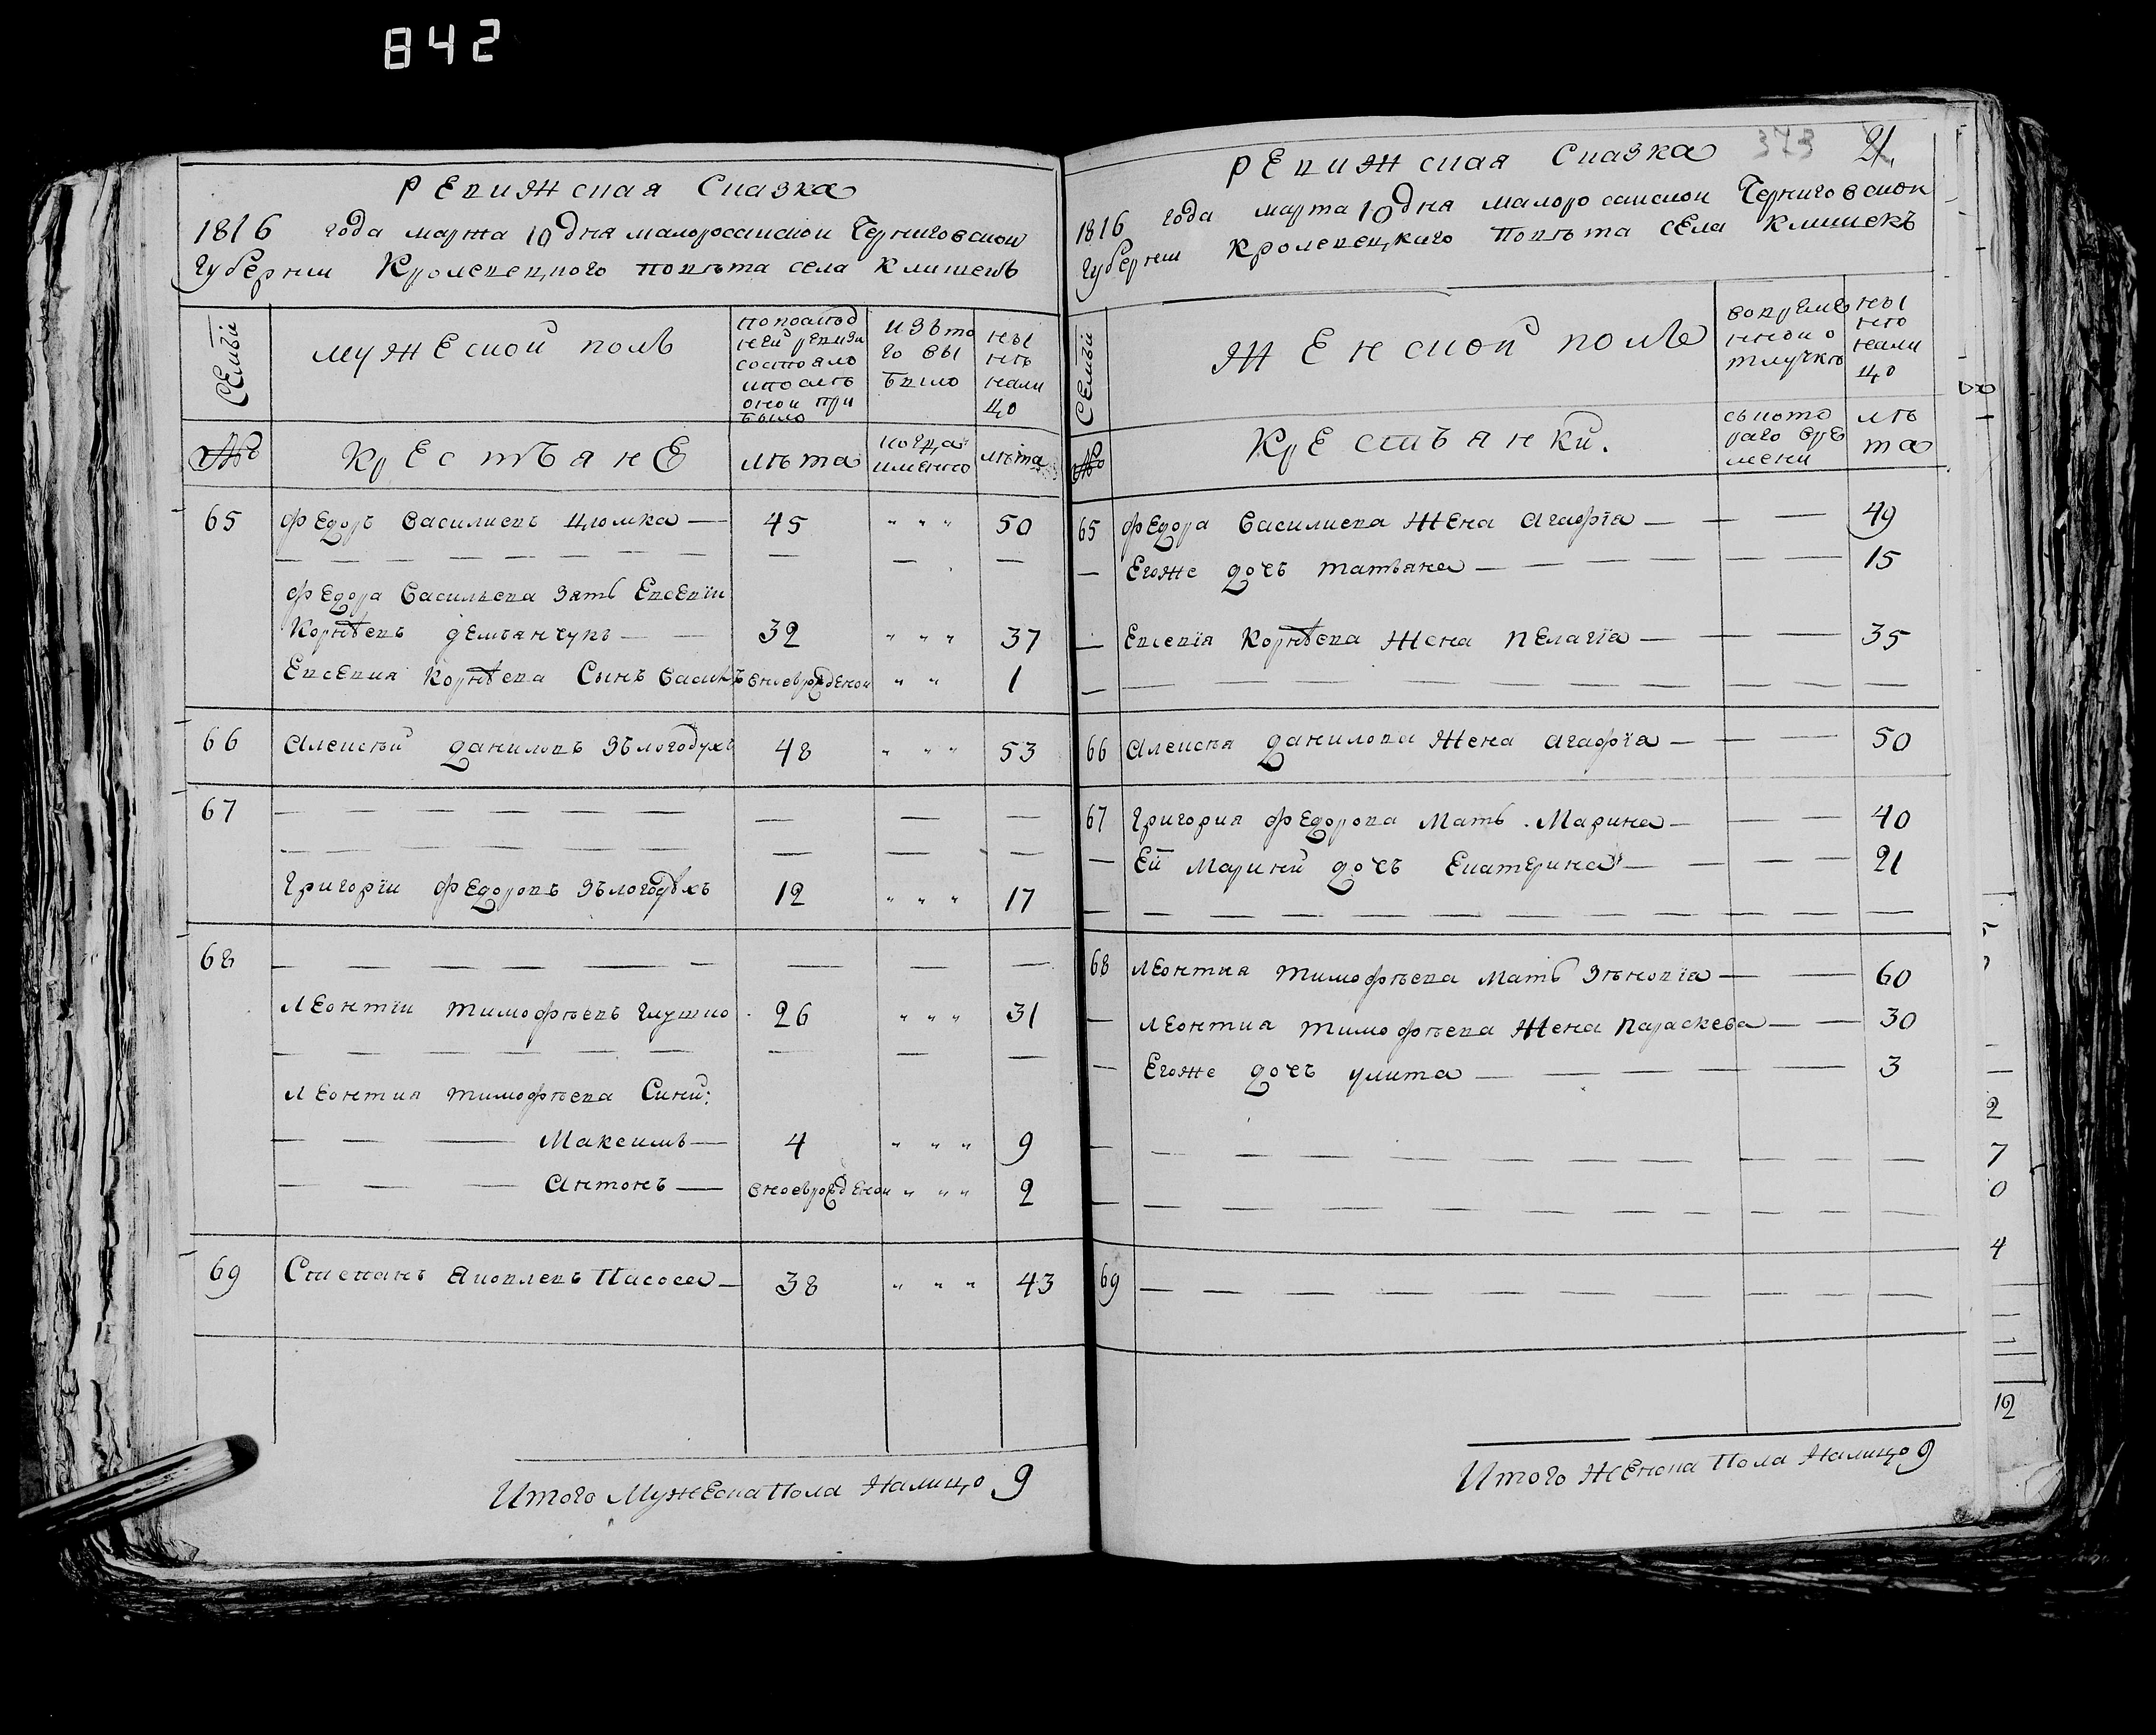 842
РЕВИЖСКАЯ Сказка
1816 года марта 10 дня малороссийской Черниговской
губернии Кролевецкого повѣта села Клишекъ
Семьи
мужеской полъ
по послѣд
ней ревизи
состояло
и после
оной при
было
изъ то
го вы
было
ны
нѣ
нали
цо
№
Крестьяне
лѣта
когда
именно
лѣта
65 Федоръ Василиевъ Цюмка — 45 " " " 50
— — — — — — — — — —
Федора Васильева зять Евсевїи
Корнѣевъ демьянчукъ — — 32 " " " 37
Евсевия Корнѣева Сынъ Василь вновьрожденои " " 1
66 Алексѣй Даниловъ Зълогодухъ 48 " " " 53
67 — — — — — — — — —
— — — — — — — — —
Григорїи Федоровъ Зълогодухъ 12 " " " 17
68 — — — — — — — — —
Леонтїи Тимофѣевъ Глушко 26 " " " 31
— — — — — — — — —
Леонтия Тимофѣева Сини:
— — — Максимъ — 4 " " " 9
— — — Антонъ — вновьрожденои " " " 2
69 Степанъ Яковлевъ Пасоса — 38 " " " 43
Итого Мужеска Пола Налицо 9
373 21.
РЕВИЖСКАЯ Сказка
1816 года марта 10 дня малоросийской Черниговской
губернии Кролевецкаго Повѣта Села Клишекъ
Семьи
Женской полъ
во време
нной о
тлучкѣ
ны
нѣ
нали
цо
№
Крестьянки.
съ кото
раго вре
мени
лѣ
та
65 Федора Василиева Жена Агафїа — — — 49
— Егоже дочь татьяна — — — — — — 15
— Евсевїя Корнѣева Жена Пелагїа — — — 35
— — — — — — — — — —
66 Алексѣя Данилова Жена Агафїа — — — 50
67 Григория Федорова Мать Марина — — — 40
— Ей Марини дочь Екатерина — — — — 21
— — — — — — — — — — — — —
68 Леонтия Тимофѣева Мать Зѣновїа — — 60
— Леонтиа Тимофѣева Жена Параскева — — 30
— Егоже дочь улита — — — — — — 3
— — — — — — — — — — —
— — — — — — — — — — —
69 — — — — — — — — — —
Итого Женска Пола Налицо 9
2
7
0
4
12